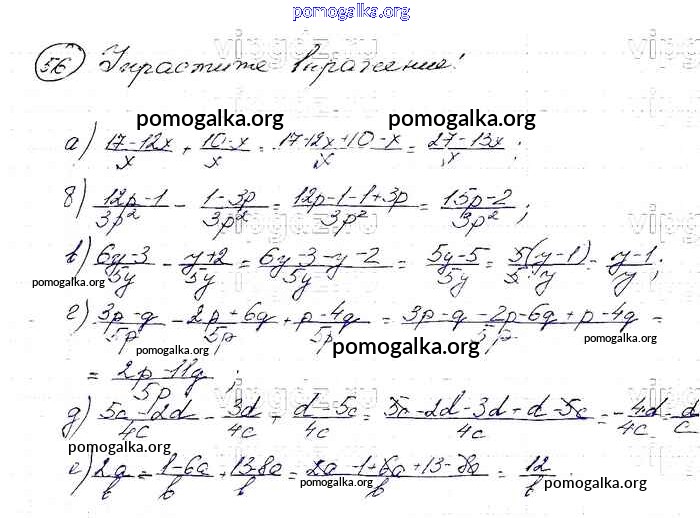 pomogalka.org
56 Упростите выражение!
pomogalka.org pomogalka.org
а) 17-12x/x + 10-x/x = 17-12x+10-x/x = 27-13x/x ;
б) 12p-1/3p² - 1-3p/3p² = 12p-1-1+3p/3p² = 15p-2/3p² ;
в) 6y-3/5y - y+2/5y = 6y-3-y-2/5y = 5y-5/5y = 5(y-1)/5·y = y-1/y ;
pomogalka.org pomogalka.org
г) 3p-q/5p - 2p+6q/5p + p-4q/5p = 3p-q-2p-6q+p-4q/5p =
pomogalka.org pomogalka.org
= 2p-11q/5p ;
д) 5c-2d/4c - 3d/4c + d-5c/4c = 5c-2d-3d+d-5c/4c = -4d/4c - d/c
pomogalka.org
е) 2a/b - 1-6a/b + 13-8a/b = 2a-1+6a+13-8a/b = 12/b
pomogalka.org pomogalka.org pomogalka.org